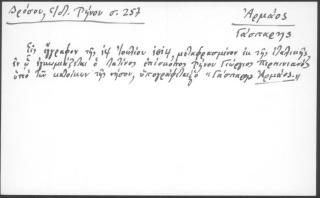 Δρόσου, Ιστ. Τήνου σ. 257
Ἀρμάος
Γάσπαρης
Εἰς ἔγγραφον τῆς ιφ Ἰουλίου 1614, μεταφρασμένον ἐκ τῆς ἰταλικῆς
ἐν ᾧ ἐγκωμιάζεται ὁ Λατῖνος ἐπίσκοπος Τήνου Γεώργιος Περπινιανὸς
ὑπὸ τῶν κατοίκων τῆς νήσου, ὑπογράφεται ὁ "Γάσπαρης Ἀρμάος"